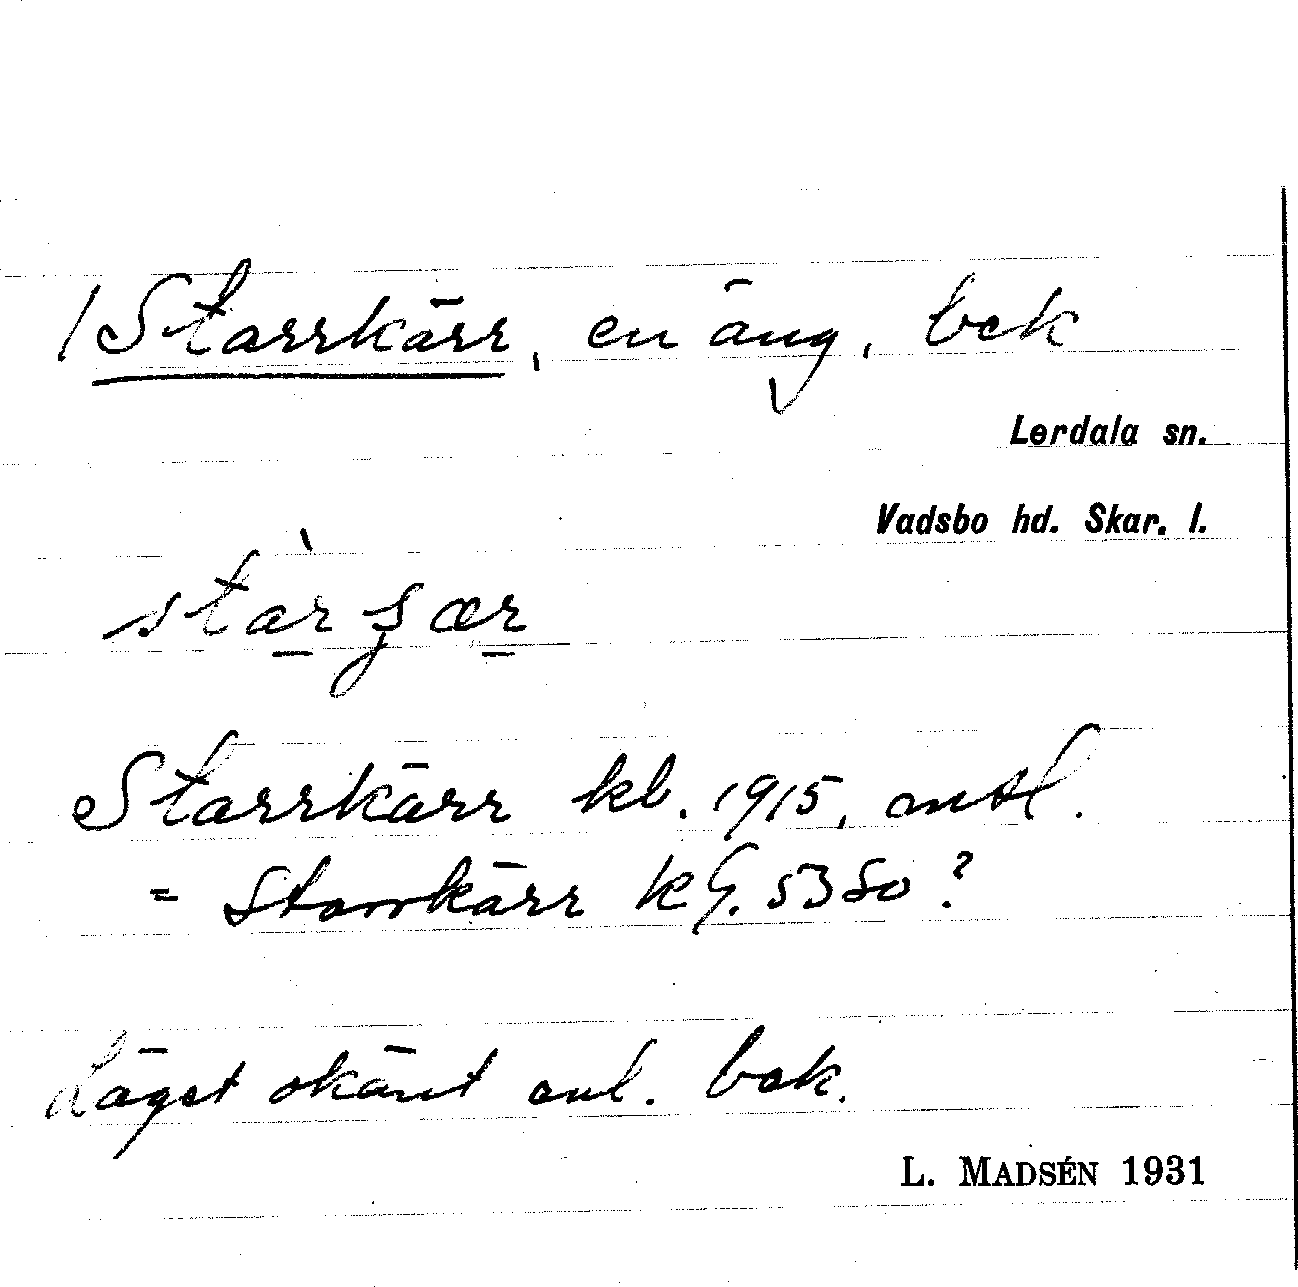 /Starrkärr, en äng, bek
Lerdala sn.
Vadsbo hd. Skar. l.
Starrkärr kb. 1915, antl.
= Starrkärr kG. 5350?
Läget okänt enl. bok.
L. MADSÉN 1931